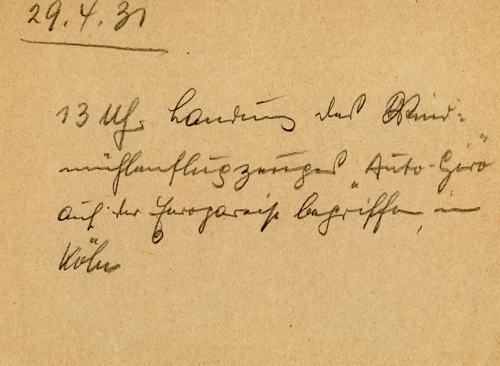 29.4.31
13 Uhr Landung des Wind-
mühlenflugzeuges „Auto-Giro“
auf der Europareise begriffen, in
Köln